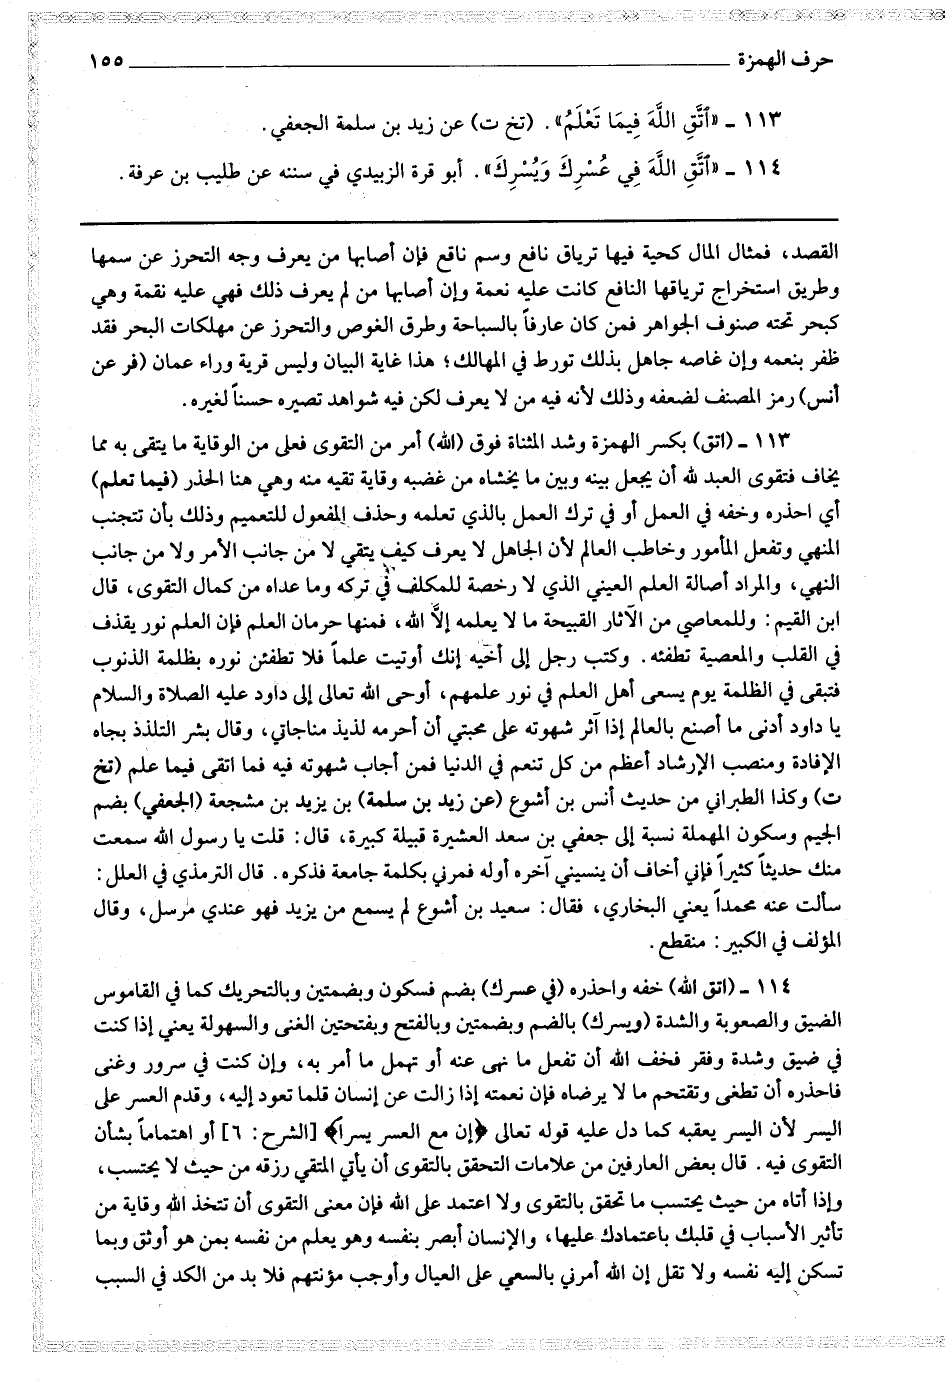 حرف الهمزة ١٥٥
١١٣ ـ «ٱتَّقِ اللَّهَ فِيمَا تَعْلَمُ». (تخ ت) عن زيد بن سلمة الجعفي.
١١٤ ـ «ٱتَّقِ اللَّهَ فِي عُسْرِكَ وَيُسْرِكَ». أبو قرة الزبيدي في سننه عن طليب بن عرفة.
القصد، فمثال المال كحية فيها ترياق نافع وسم ناقع فإن أصابها من يعرف وجه التحرز عن سمها
وطريق استخراج ترياقها النافع كانت عليه نعمة وإن أصابها من لم يعرف ذلك فهي عليه نقمة وهي
كبحر تحته صنوف الجواهر فمن كان عارفاً بالسباحة وطرق الغوص والتحرز عن مهلكات البحر فقد
ظفر بنعمه وإن غاصه جاهل بذلك تورط في المهالك؛ هذا غاية البيان وليس قرية وراء عمان (فر عن
أنس) رمز المصنف لضعفه وذلك لأنه فيه من لا يعرف لكن فيه شواهد تصيره حسناً لغيره.
١١٣ ـ (اتق) بكسر الهمزة وشد المثناة فوق (الله) أمر من التقوى فعلى من الوقاية ما يتقى به مما
يخاف فتقوى العبد لله أن يجعل بينه وبين ما يخشاه من غضبه وقاية تقيه منه وهي هنا الحذر (فيما تعلم)
أي احذره وخفه في العمل أو في ترك العمل بالذي تعلمه وحذف المفعول للتعميم وذلك بأن تتجنب
المنهي وتفعل المأمور وخاطب العالم لأن الجاهل لا يعرف كيف يتقي لا من جانب الأمر ولا من جانب
النهي، والمراد أصالة العلم العيني الذي لا رخصة للمكلف في تركه وما عداه من كمال التقوى، قال
ابن القيم: وللمعاصي من الآثار القبيحة ما لا يعلمه إلاَّ الله، فمنها حرمان العلم فإن العلم نور يقذف
في القلب والمعصية تطفئه. وكتب رجل إلى أخيه إنك أوتيت علماً فلا تطفئن نوره بظلمة الذنوب
فتبقى في الظلمة يوم يسعى أهل العلم في نور علمهم، أوحى الله تعالى إلى داود عليه الصلاة والسلام
يا داود أدنى ما أصنع بالعالم إذا آثر شهوته على محبتي أن أحرمه لذيذ مناجاتي، وقال بشر التلذذ بجاه
الإفادة ومنصب الإرشاد أعظم من كل تنعم في الدنيا فمن أجاب شهوته فيه فما اتقى فيما علم (تخ
ت) وكذا الطبراني من حديث أنس بن أشوع (عن زيد بن سلمة) بن يزيد بن مشجعة (الجعفي) بضم
الجيم وسكون المهملة نسبة إلى جعفي بن سعد العشيرة قبيلة كبيرة، قال: قلت يا رسول الله سمعت
منك حديثاً كثيراً فإني أخاف أن ينسيني آخره أوله فمرني بكلمة جامعة فذكره. قال الترمذي في العلل:
سألت عنه محمداً يعني البخاري، فقال: سعيد بن أشوع لم يسمع من يزيد فهو عندي مرسل، وقال
المؤلف في الكبير: منقطع.
١١٤ ـ (اتق الله) خفه واحذره (في عسرك) بضم فسكون وبضمتين وبالتحريك كما في القاموس
الضيق والصعوبة والشدة (ويسرك) بالضم وبضمتين وبالفتح وبفتحتين الغنى والسهولة يعني إذا كنت
في ضيق وشدة وفقر فخف الله أن تفعل ما نهى عنه أو تهمل ما أمر به، وإن كنت في سرور وغنى
فاحذره أن تطغى وتقتحم ما لا يرضاه فإن نعمته إذا زالت عن إنسان قلما تعود إليه، وقدم العسر على
اليسر لأن اليسر يعقبه كما دل عليه قوله تعالى ﴿إن مع العسر يسراً﴾ [الشرح: ٦] أو اهتماماً بشأن
التقوى فيه. قال بعض العارفين من علامات التحقق بالتقوى أن يأتي المتقي رزقه من حيث لا يحتسب،
وإذا أتاه من حيث يحتسب ما تحقق بالتقوى ولا اعتمد على الله فإن معنى التقوى أن تتخذ الله وقاية من
تأثير الأسباب في قلبك باعتمادك عليها، والإنسان أبصر بنفسه وهو يعلم من نفسه بمن هو أوثق وبما
تسكن إليه نفسه ولا تقل إن الله أمرني بالسعي على العيال وأوجب مؤنتهم فلا بد من الكد في السبب